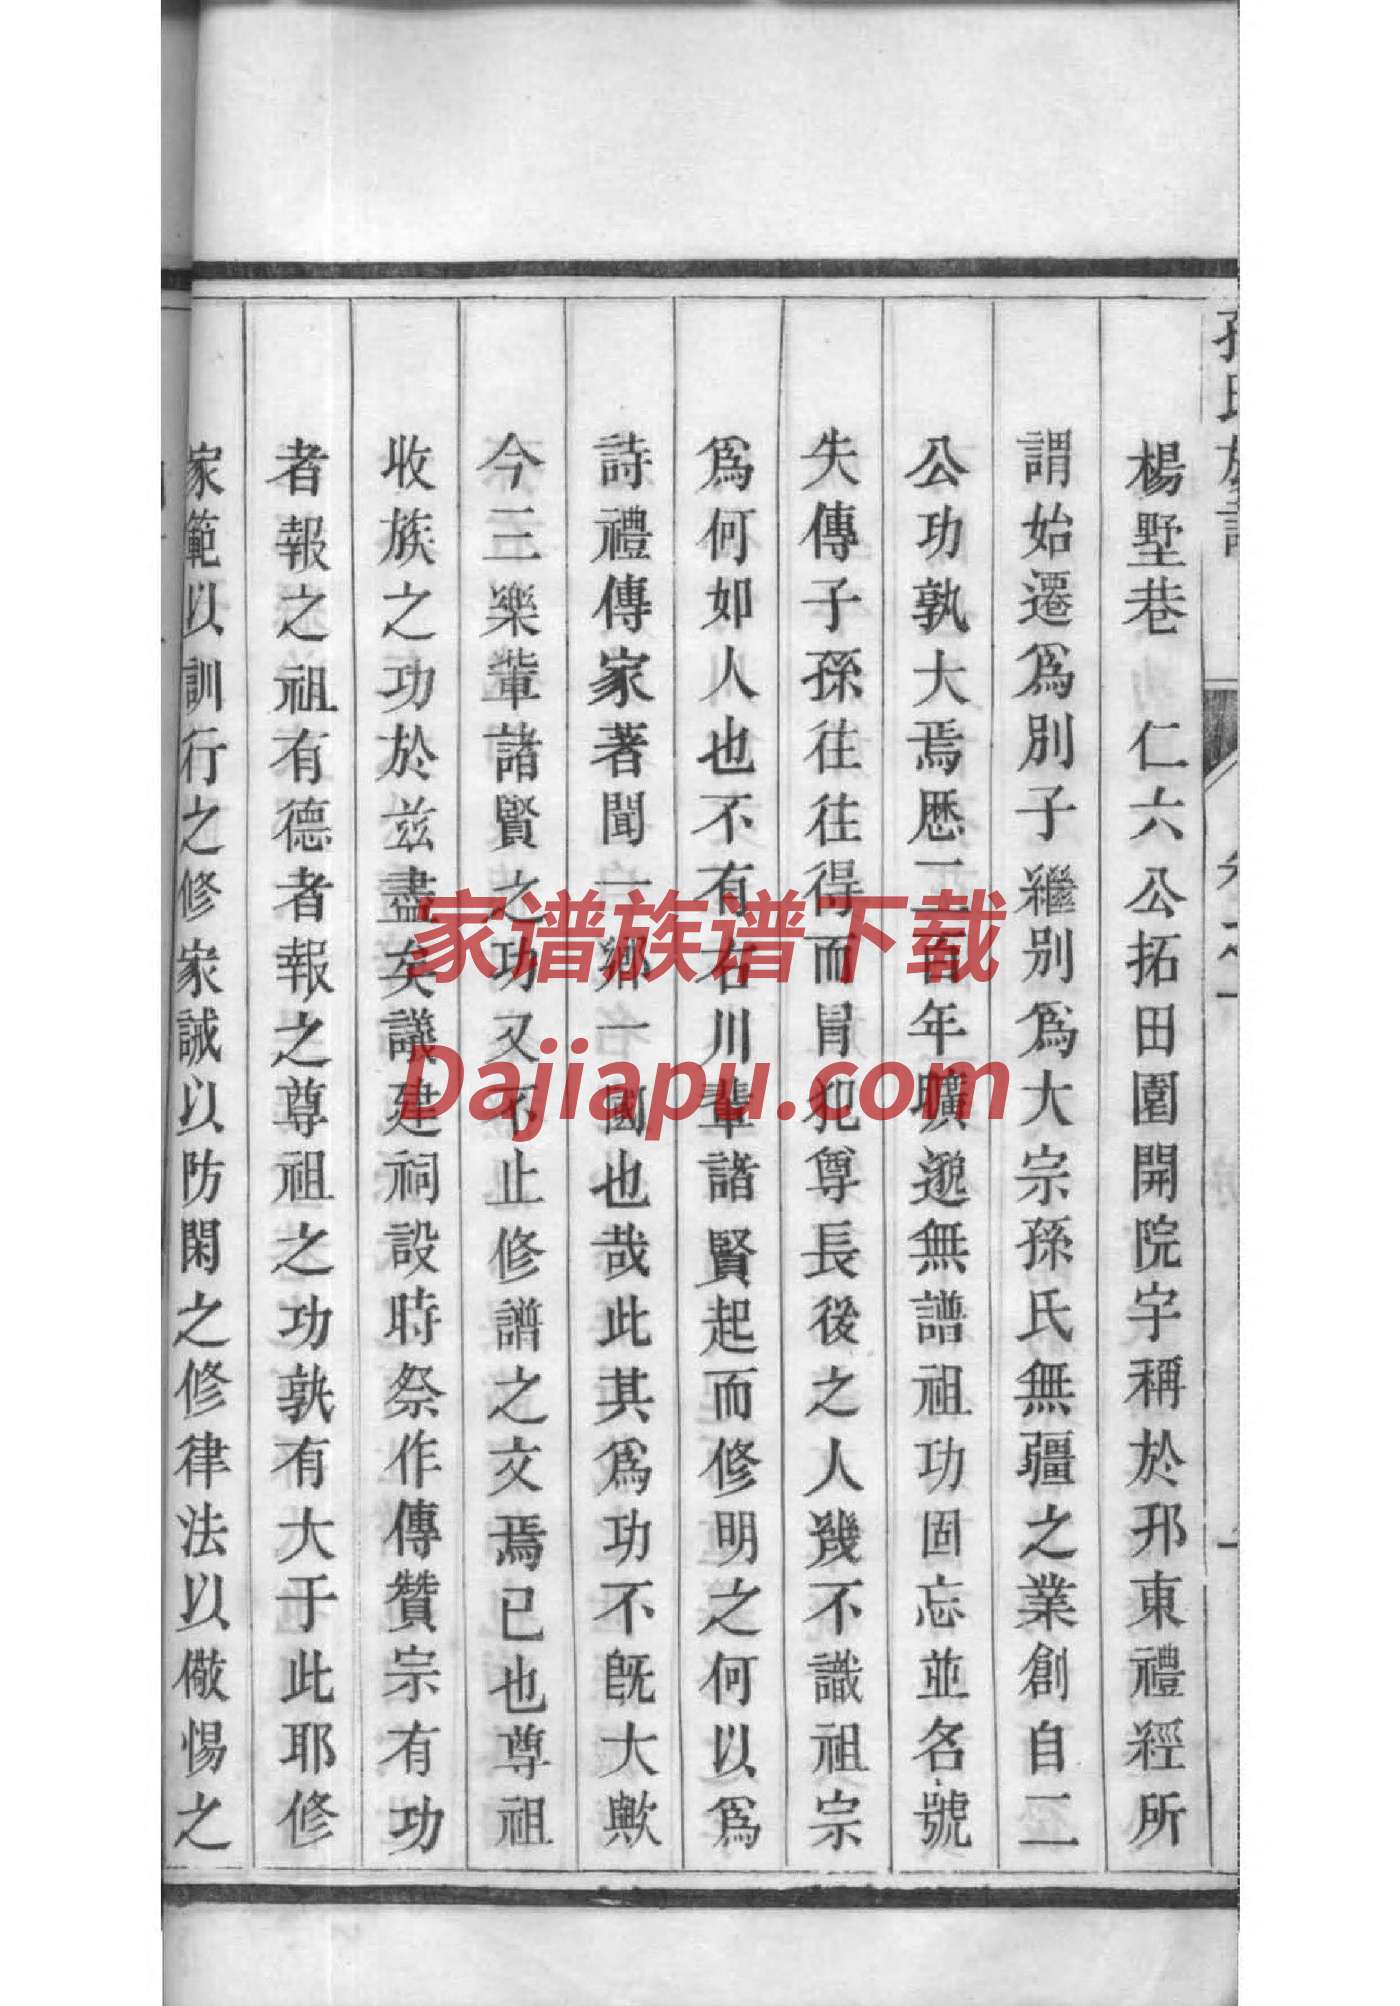 孫氏族譜
楊墅巷　仁六公拓田園開院宇稱於邘東禮經所
謂始遷爲別子繼別爲大宗孫氏無疆之業創自二
公功孰大焉歷二百年曠邈無譜祖功固忘並名號
失傳子孫往往得而冒犯尊長後之人幾不識祖宗
爲何如人也不有右川輩諧賢起而修明之何以爲
詩禮傳家著聞一鄉一國也哉此其爲功不旣大歟
今三樂輩諸賢之功又不止修譜之文焉已也尊祖
收族之功於兹盡矣議建祠設時祭作傳贊宗有功
者報之祖有德者報之尊祖之功孰有大于此耶修
家範以訓行之修家誡以防閑之修律法以儆惕之
家谱族谱下载
Dajiapu.com